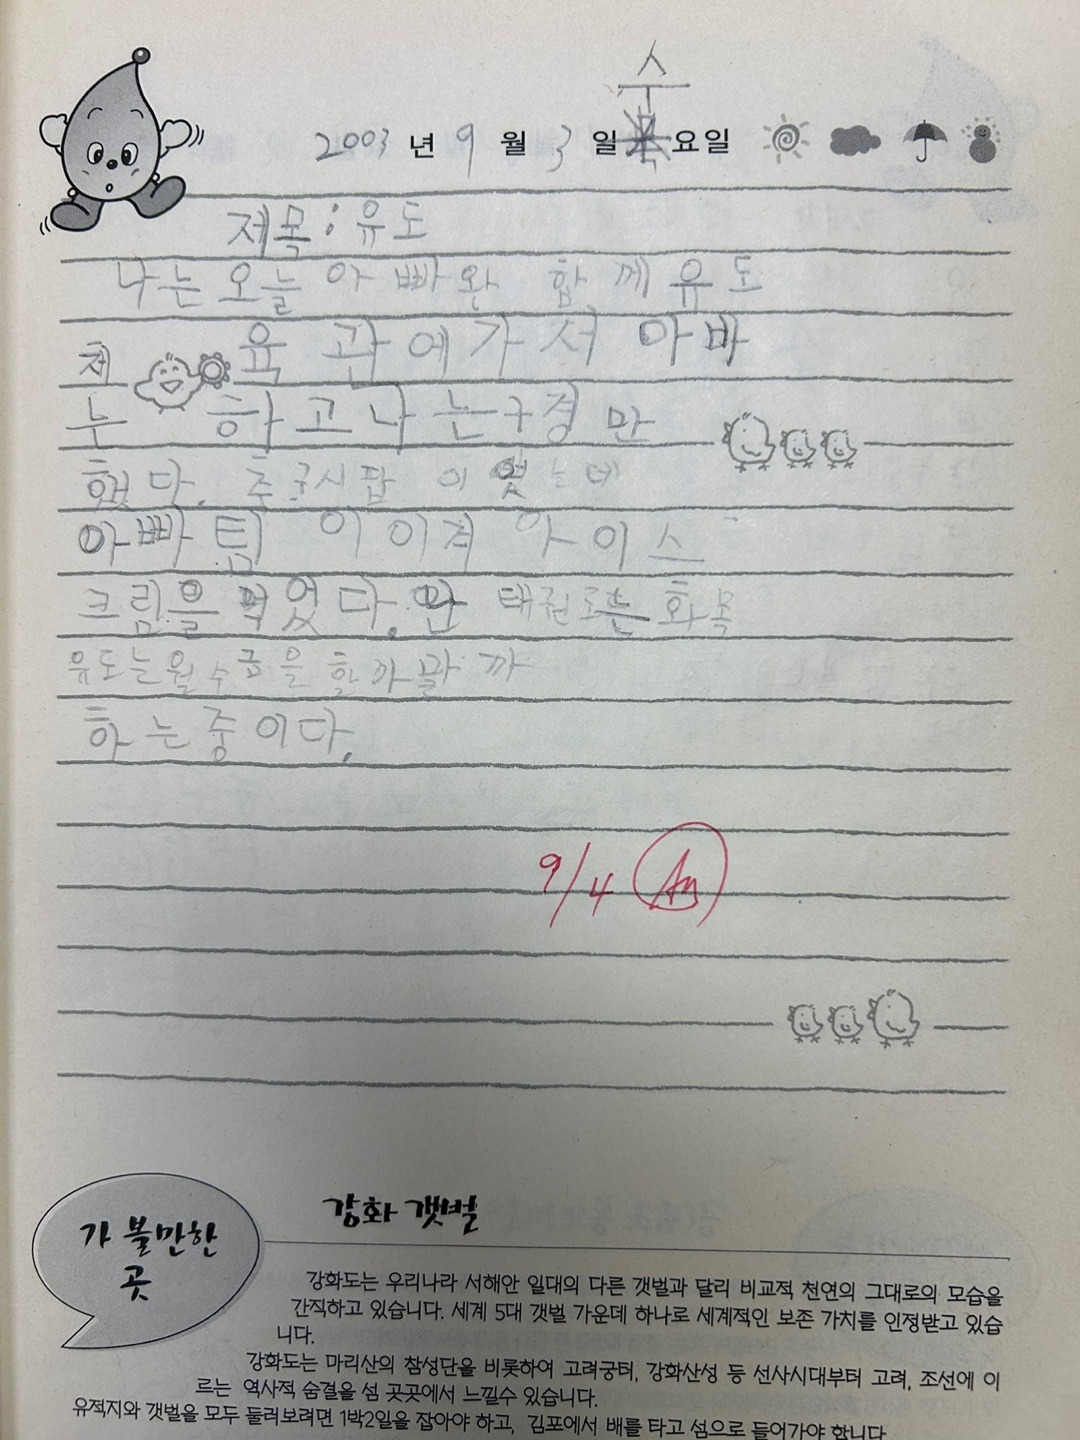 수
2003 년 9 월 3 일 요요일
제목 : 유도
나는 오늘 아빠와 함께 유도
체육관에가서 아바
는 하고나는구경만
했다. 축구시합 이 있는데
아빠팀 이이겨 아이스
크림을 먹었다. 태권도는 화목
유도는월수금을 할까말까
하는중이다.
9/4
가 볼만한
곳
강화 갯벌
강화도는 우리나라 서해안 일대의 다른 갯벌과 달리 비교적 천연의 그대로의 모습을
간직하고 있습니다. 세계 5대 갯벌 가운데 하나로 세계적인 보존 가치를 인정받고 있습
니다.
강화도는 마리산의 참성단을 비롯하여 고려궁터, 강화산성 등 선사시대부터 고려, 조선에 이
르는 역사적 숨결을 섬 곳곳에서 느낄수 있습니다.
유적지와 갯벌을 모두 둘러보려면 1박2일을 잡아야 하고, 김포에서 배를 타고 섬으로 들어가야 합니다